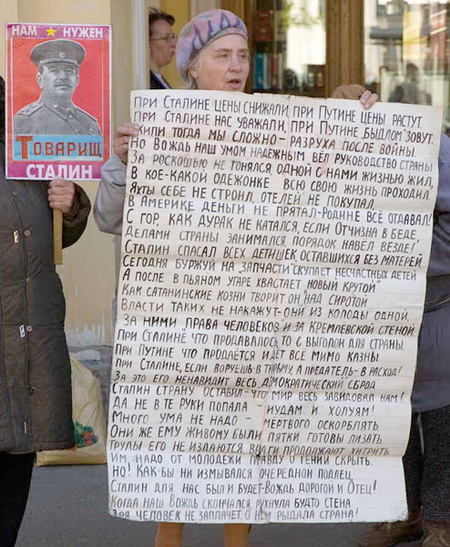 НАМ НУЖЕН
ТОВАРИЩ
СТАЛИН
ПРИ СТАЛИНЕ ЦЕНЫ СНИЖАЛИ, ПРИ ПУТИНЕ ЦЕНЫ РАСТУТ
ПРИ СТАЛИНЕ НАС УВАЖАЛИ, ПРИ ПУТИНЕ БЫДЛОМ ЗОВУТ.
ЖИЛИ ТОГДА МЫ СЛОЖНО - РАЗРУХА ПОСЛЕ ВОЙНЫ.
НО ВОЖДЬ НАШ УМОМ НАДЕЖНЫМ ВЁЛ РУКОВОДСТВО СТРАНЫ
ЗА РОСКОШЬЮ НЕ ГОНЯЛСЯ, ОДНОЙ С НАМИ ЖИЗНЬЮ ЖИЛ,
В КОЕ-КАКОЙ ОДЕЖОНКЕ ВСЮ СВОЮ ЖИЗНЬ ПРОХОДИЛ.
ЯХТЫ СЕБЕ НЕ СТРОИЛ, ОТЕЛЕЙ НЕ ПОКУПАЛ,
В АМЕРИКЕ ДЕНЬГИ НЕ ПРЯТАЛ-РОДИНЕ ВСЁ ОТДАВАЛ!
С ГОР, КАК ДУРАК НЕ КАТАЛСЯ, ЕСЛИ ОТЧИЗНА В БЕДЕ,
ДЕЛАМИ СТРАНЫ ЗАНИМАЛСЯ, ПОРЯДОК НАВЁЛ ВЕЗДЕ!
СТАЛИН СПАСАЛ ВСЕХ ДЕТИШЕК ОСТАВШИХСЯ БЕЗ МАТЕРЕЙ,
СЕГОДНЯ БУРЖУЙ НА "ЗАПЧАСТИ" СКУПАЕТ НЕСЧАСТНЫХ ДЕТЕЙ
А ПОСЛЕ В ПЬЯНОМ УГАРЕ ХВАСТАЕТ "НОВЫЙ КРУТОЙ"
КАК САТАНИНСКИЕ КОЗНИ ТВОРИТ ОН НАД СИРОТОЙ
ВЛАСТИ ТАКИХ НЕ НАКАЖУТ-ОНИ ИЗ КОЛОДЫ ОДНОЙ,
ЗА НИМИ ПРАВА ЧЕЛОВЕКОВ И ЗА КРЕМЛЁВСКОЙ СТЕНОЙ
ПРИ СТАЛИНЕ "ЧТО ПРОДАВАЛОСЬ, ТО С ВЫГОДОЙ ДЛЯ СТРАНЫ.
ПРИ ПУТИНЕ ЧТО ПРОДАЁТСЯ ИДЁТ ВСЁ МИМО КАЗНЫ.
ПРИ СТАЛИНЕ, ЕСЛИ ВОРУЕШЬ В ТЮРЬМУ, А ПРЕДАТЕЛЬ - В РАСХОД!
ЗА ЭТО ЕГО НЕНАВИДИТ ВЕСЬ ДЕМОКРАТИЧЕСКИЙ СБРОД
СТАЛИН СТРАНУ ОСТАВИЛ-ЧТО МИР ВЕСЬ ЗАВИДОВАЛ НАМ!
ДА НЕ В ТЕ РУКИ ПОПАЛА - ИУДАМ И ХОЛУЯМ!
МНОГО УМА НЕ НАДО - МЁРТВОГО ОСКОРБЛЯТЬ
ОНИ ЖЕ ЕМУ ЖИВОМУ БЫЛИ ПЯТКИ ГОТОВЫ ЛИЗАТЬ
ТРУДЫ ЕГО НЕ ИЗДАЮТСЯ ВРАГИ ПРОДОЛЖАЮТ ХИТРИТЬ
ИМ НАДО ОТ МОЛОДЁЖИ ПРАВДУ О ГЕНИИ СКРЫТЬ.
НО! КАК БЫ НИ ИЗМЫВАЛСЯ ОЧЕРЕДНОЙ ПОДЛЕЦ
СТАЛИН ДЛЯ НАС БЫЛ И БУДЕТ-ВОЖДЬ ДОРОГОЙ И ОТЕЦ!
КОГДА НАШ ВОЖДЬ СКОНЧАЛСЯ, РУХНУЛА БУДТО СТЕНА
ЗРЯ ЧЕЛОВЕК НЕ ЗАПЛАЧЕТ О НЁМ РЫДАЛА СТРАНА!